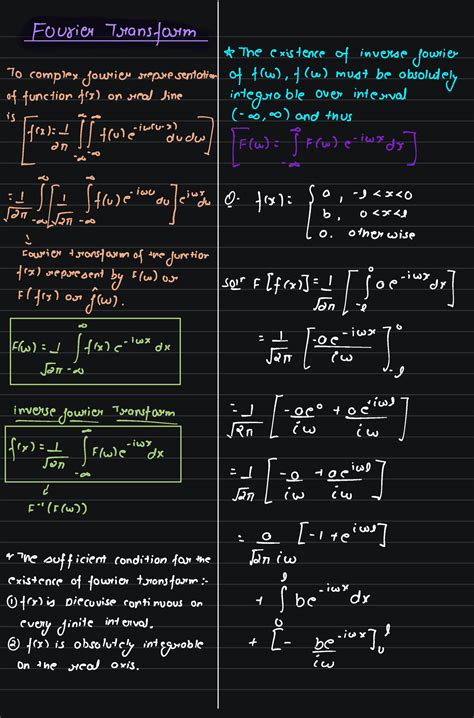 Fourier Transform
To complex fourier representation
of function f(x) on real line
is [f(x) = 1/2π ∫_{-∞}^{∞} ∫_{-∞}^{∞} f(u) e^{-iω(u-x)} du dω]
= 1/√2π ∫_{-∞}^{∞} [1/√2π ∫_{-∞}^{∞} f(u) e^{-iωu} du] e^{iωx} dω
Fourier transform of the function
f(x) represent by F(ω) or
F(f(x) or f̂(ω).
F(ω) = 1/√2π ∫_{-∞}^{∞} f(x) e^{-iωx} dx
inverse fourier Transform
f(x) = 1/√2π ∫_{-∞}^{∞} F(ω) e^{-iωx} dx
F⁻¹(F(ω))
* The sufficient condition for the
existence of fourier transform:-
① f(x) is piecewise continuous on
every finite interval.
② f(x) is absolutely integrable
on the real axis.
* The existence of inverse fourier
of f(ω), f(ω) must be absolutely
integrable over interval
(-∞, ∞) and thus
[F(ω) = ∫_{-∞}^{∞} F(ω) e^{-iωx} dx]
Q. f(x) = { a, -l < x < 0
b, 0 < x < l
0. otherwise
Solⁿ F[f(x)] = 1/√2π [∫_{-l}^{0} a e^{-iωx} dx]
= 1/√2π [-a e^{-iωx} / iω]_{-l}^{0}
= 1/√2π [-a e^0 / iω + a e^{iωl} / iω]
= 1/√2π [-a / iω + a e^{iωl} / iω]
= a / √2π iω [-1 + e^{iωl}]
+ ∫_{0}^{l} b e^{-iωx} dx
+ [- b e^{-iωx} / iω]_{0}^{l}